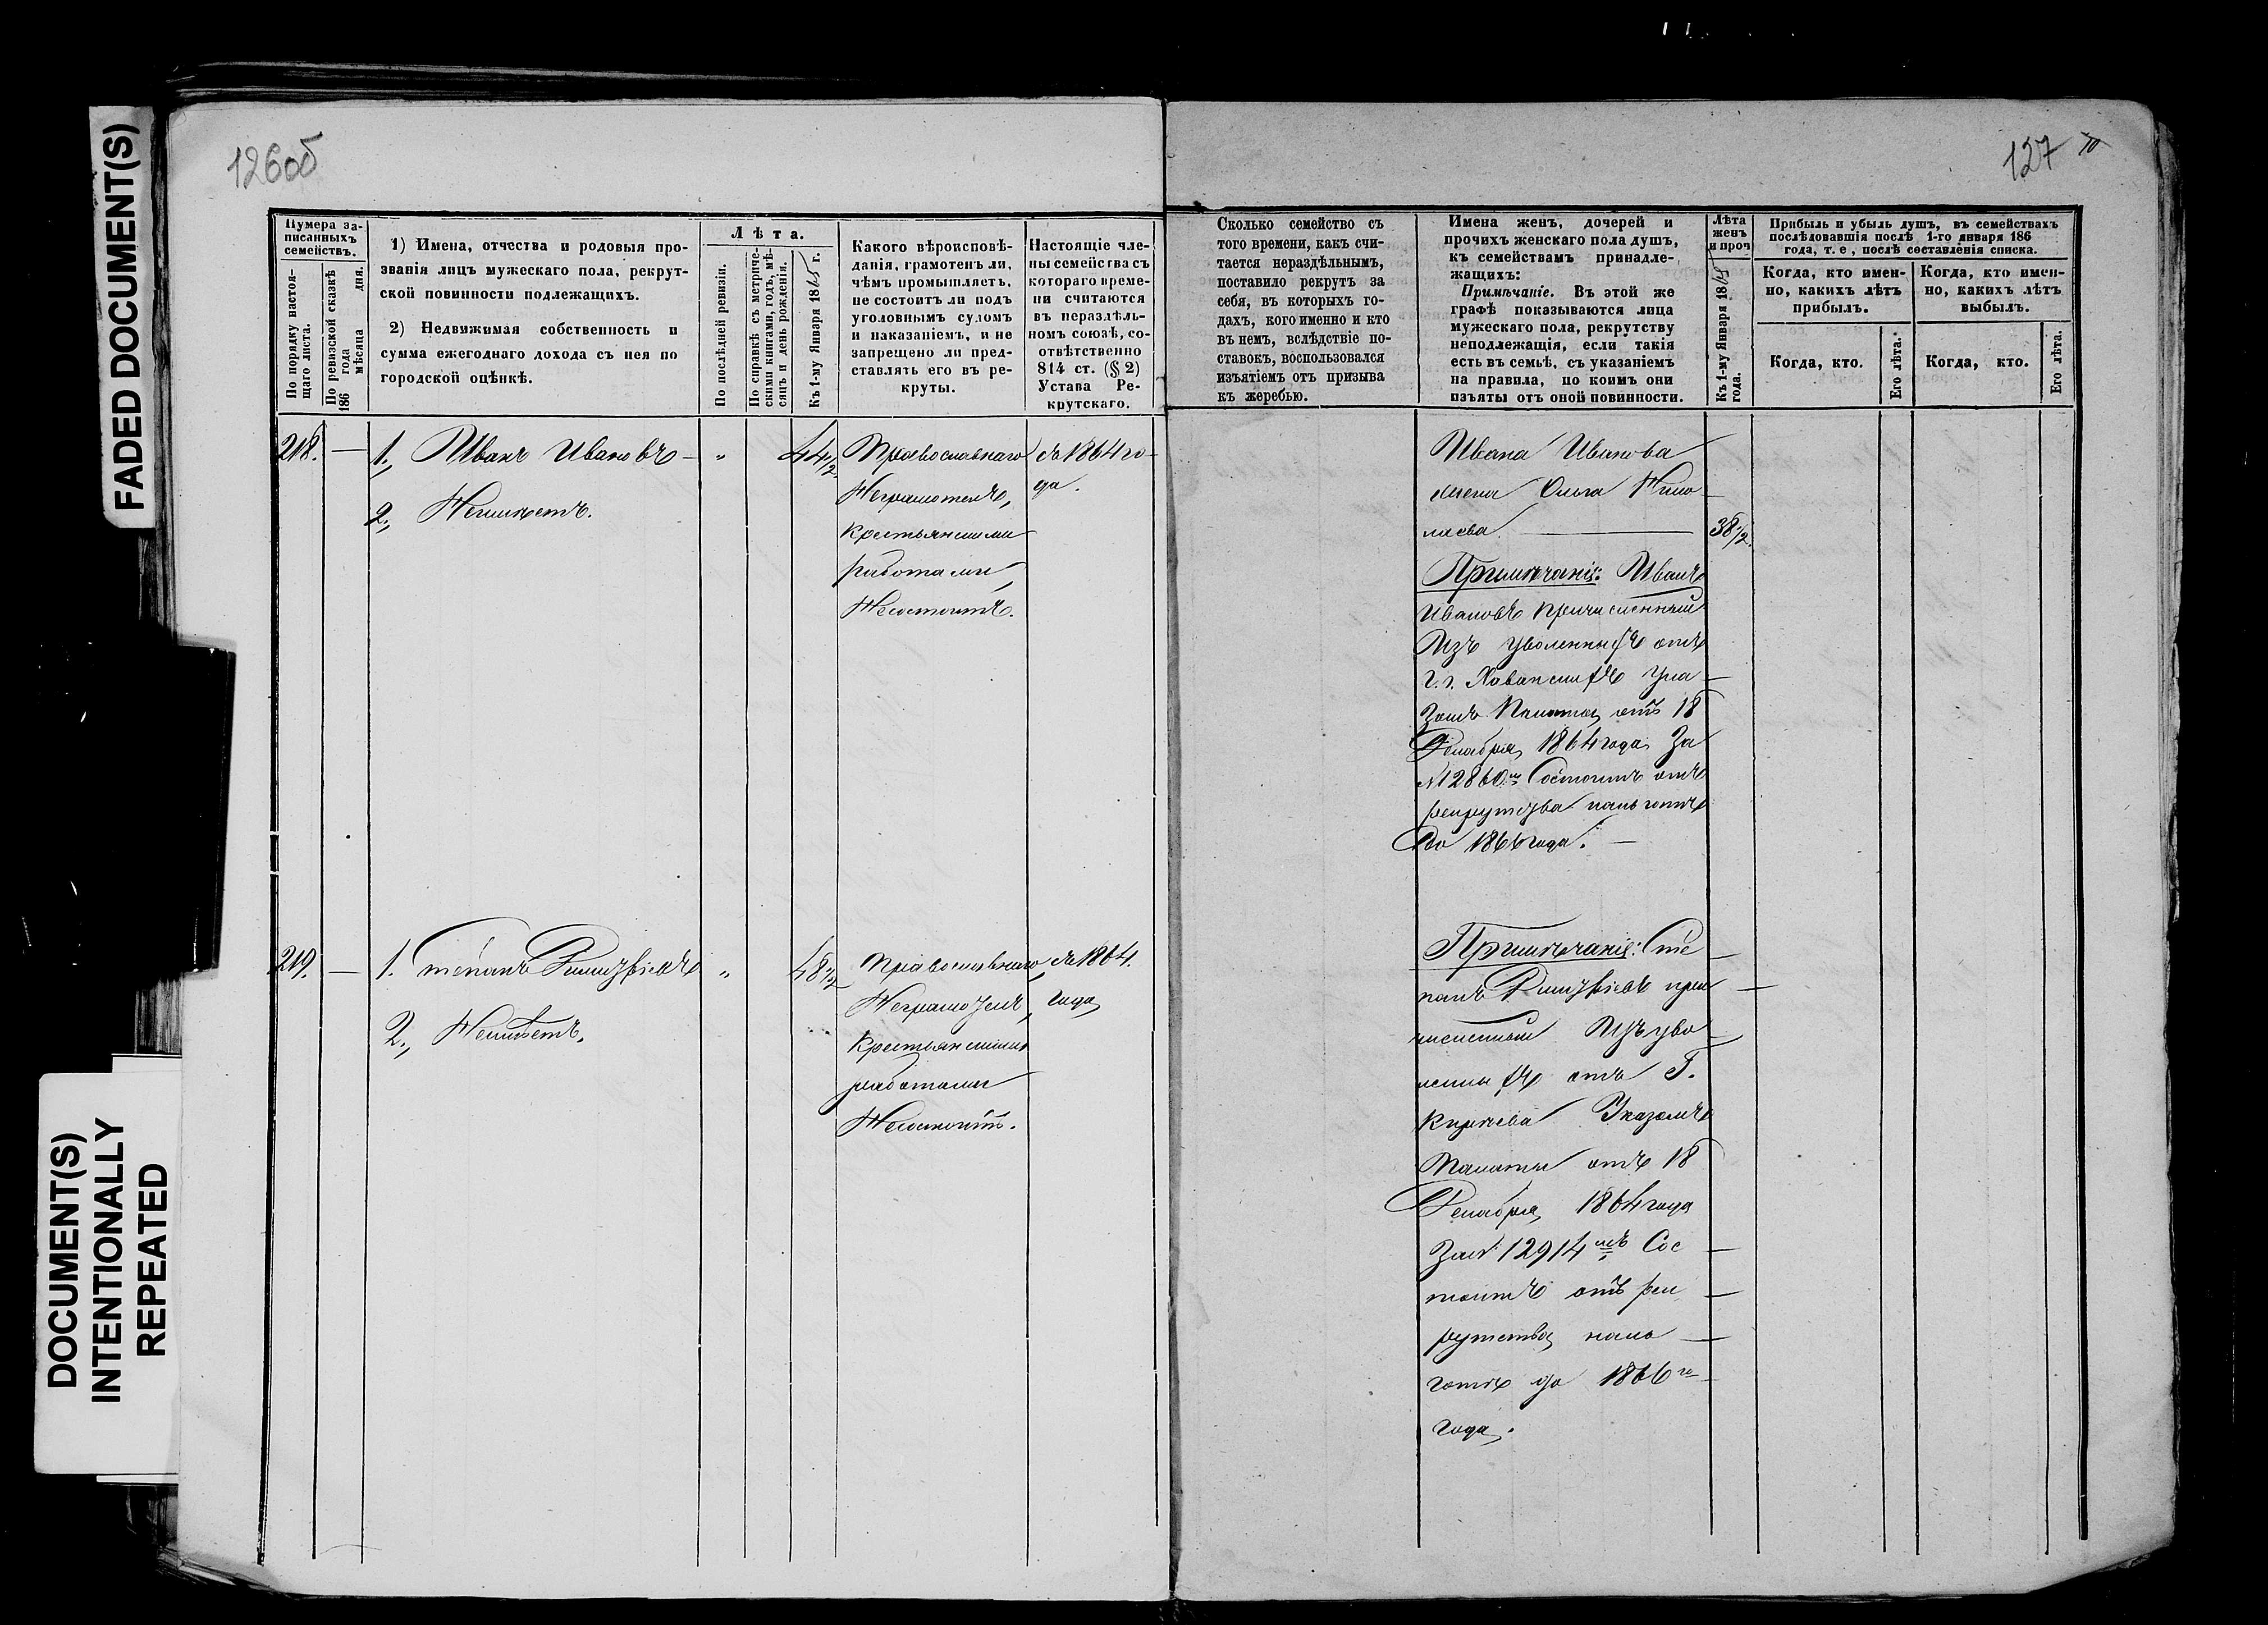 FADED DOCUMENT(S)
DOCUMENT(S)
INTENTIONALLY
REPEATED
126об
Нумера за-
писанныхъ
семействъ.
По порядку настоя-
щаго листа.
По ревизской сказкѣ
186 года
мѣсяца дня.
1) Имена, отчества и родовыя про-
званія лицъ мужескаго пола, рекрут-
ской повинности подлежащихъ.
2) Недвижимая собственность и
сумма ежегоднаго дохода съ нея по
городской оцѣнкѣ.
Лѣта.
По послѣдней ревизіи.
По справкѣ съ метриче-
скими книгами, годъ, мѣ-
сяцъ и день рожденія.
Къ 1-му Января 1865 г.
Какого вѣроисповѣ-
данія, грамотенъ ли,
чѣмъ промышляетъ,
не состоитъ ли подъ
уголовнымъ судомъ
и наказаніемъ, и не
запрещено ли пред-
ставлять его въ ре-
круты.
Настоящіе чле-
ны семейства съ
котораго време-
ни считаются
въ нераздѣль-
номъ союзѣ, со-
отвѣтственно
814 ст. (§ 2)
Устава Ре-
крутскаго.
218. — 1., Иванъ Ивановъ — „ 44 1/2
2., Неимѣетъ.
Православнаго
Неграмотенъ,
крестьянскими
работами,
Несостоитъ.
съ 1864 го-
да.
219. — 1. Степанъ „ 48 1/2
2., Неимѣетъ.
Православнаго
Неграмотенъ,
Крестьянскими
работами
Несостоитъ.
съ 1864.
года
127
Сколько семейство съ
того времени, какъ счи-
тается нераздѣльнымъ,
поставило рекрутъ за
себя, въ которыхъ го-
дахъ, кого именно и кто
въ немъ, вслѣдствіе по-
ставокъ, воспользовался
изъятіемъ отъ призыва
къ жеребью.
Имена женъ, дочерей и
прочихъ женскаго пола душъ,
къ семействамъ принадле-
жащихъ:
Примѣчаніе. Въ этой же
графѣ показываются лица
мужескаго пола, рекрутству
неподлежащія, если такія
есть въ семьѣ, съ указаніемъ
на правила, по коимъ они
изъяты отъ оной повинности.
Лѣта
женъ
и проч
Къ 1-му Января 1865
года.
Прибыль и убыль душъ, въ семействахъ
послѣдовавшія послѣ 1-го января 186
года, т. е, послѣ составленія списка.
Когда, кто имен-
но, какихъ лѣтъ
прибылъ.
Когда, кто имен-
но, какихъ лѣтъ
выбылъ.
Когда, кто.
Его лѣта.
Когда, кто.
Его лѣта.
Ивана Иванова
жена Ольга Нико-
лаева. — 38 1/2.
Примѣчаніе: Иванъ
Ивановъ причисленный
Изъ уволенныхъ отъ
Г. г. Хованскихъ Ука-
зомъ Палаты отъ 18
Декабря 1864 года За
№ 12860мъ Состоитъ отъ
рекрутства на льготѣ
до 1866 года. —
Примѣчаніе: Сте-
панъ при-
численный Изъ уво-
ленныхъ отъ Г.
Указомъ
Палаты отъ 18
Декабря 1864 года
За № 12914мъ Сос-
тоитъ отъ рек-
рутства на ль-
готѣ до 1866го
года.